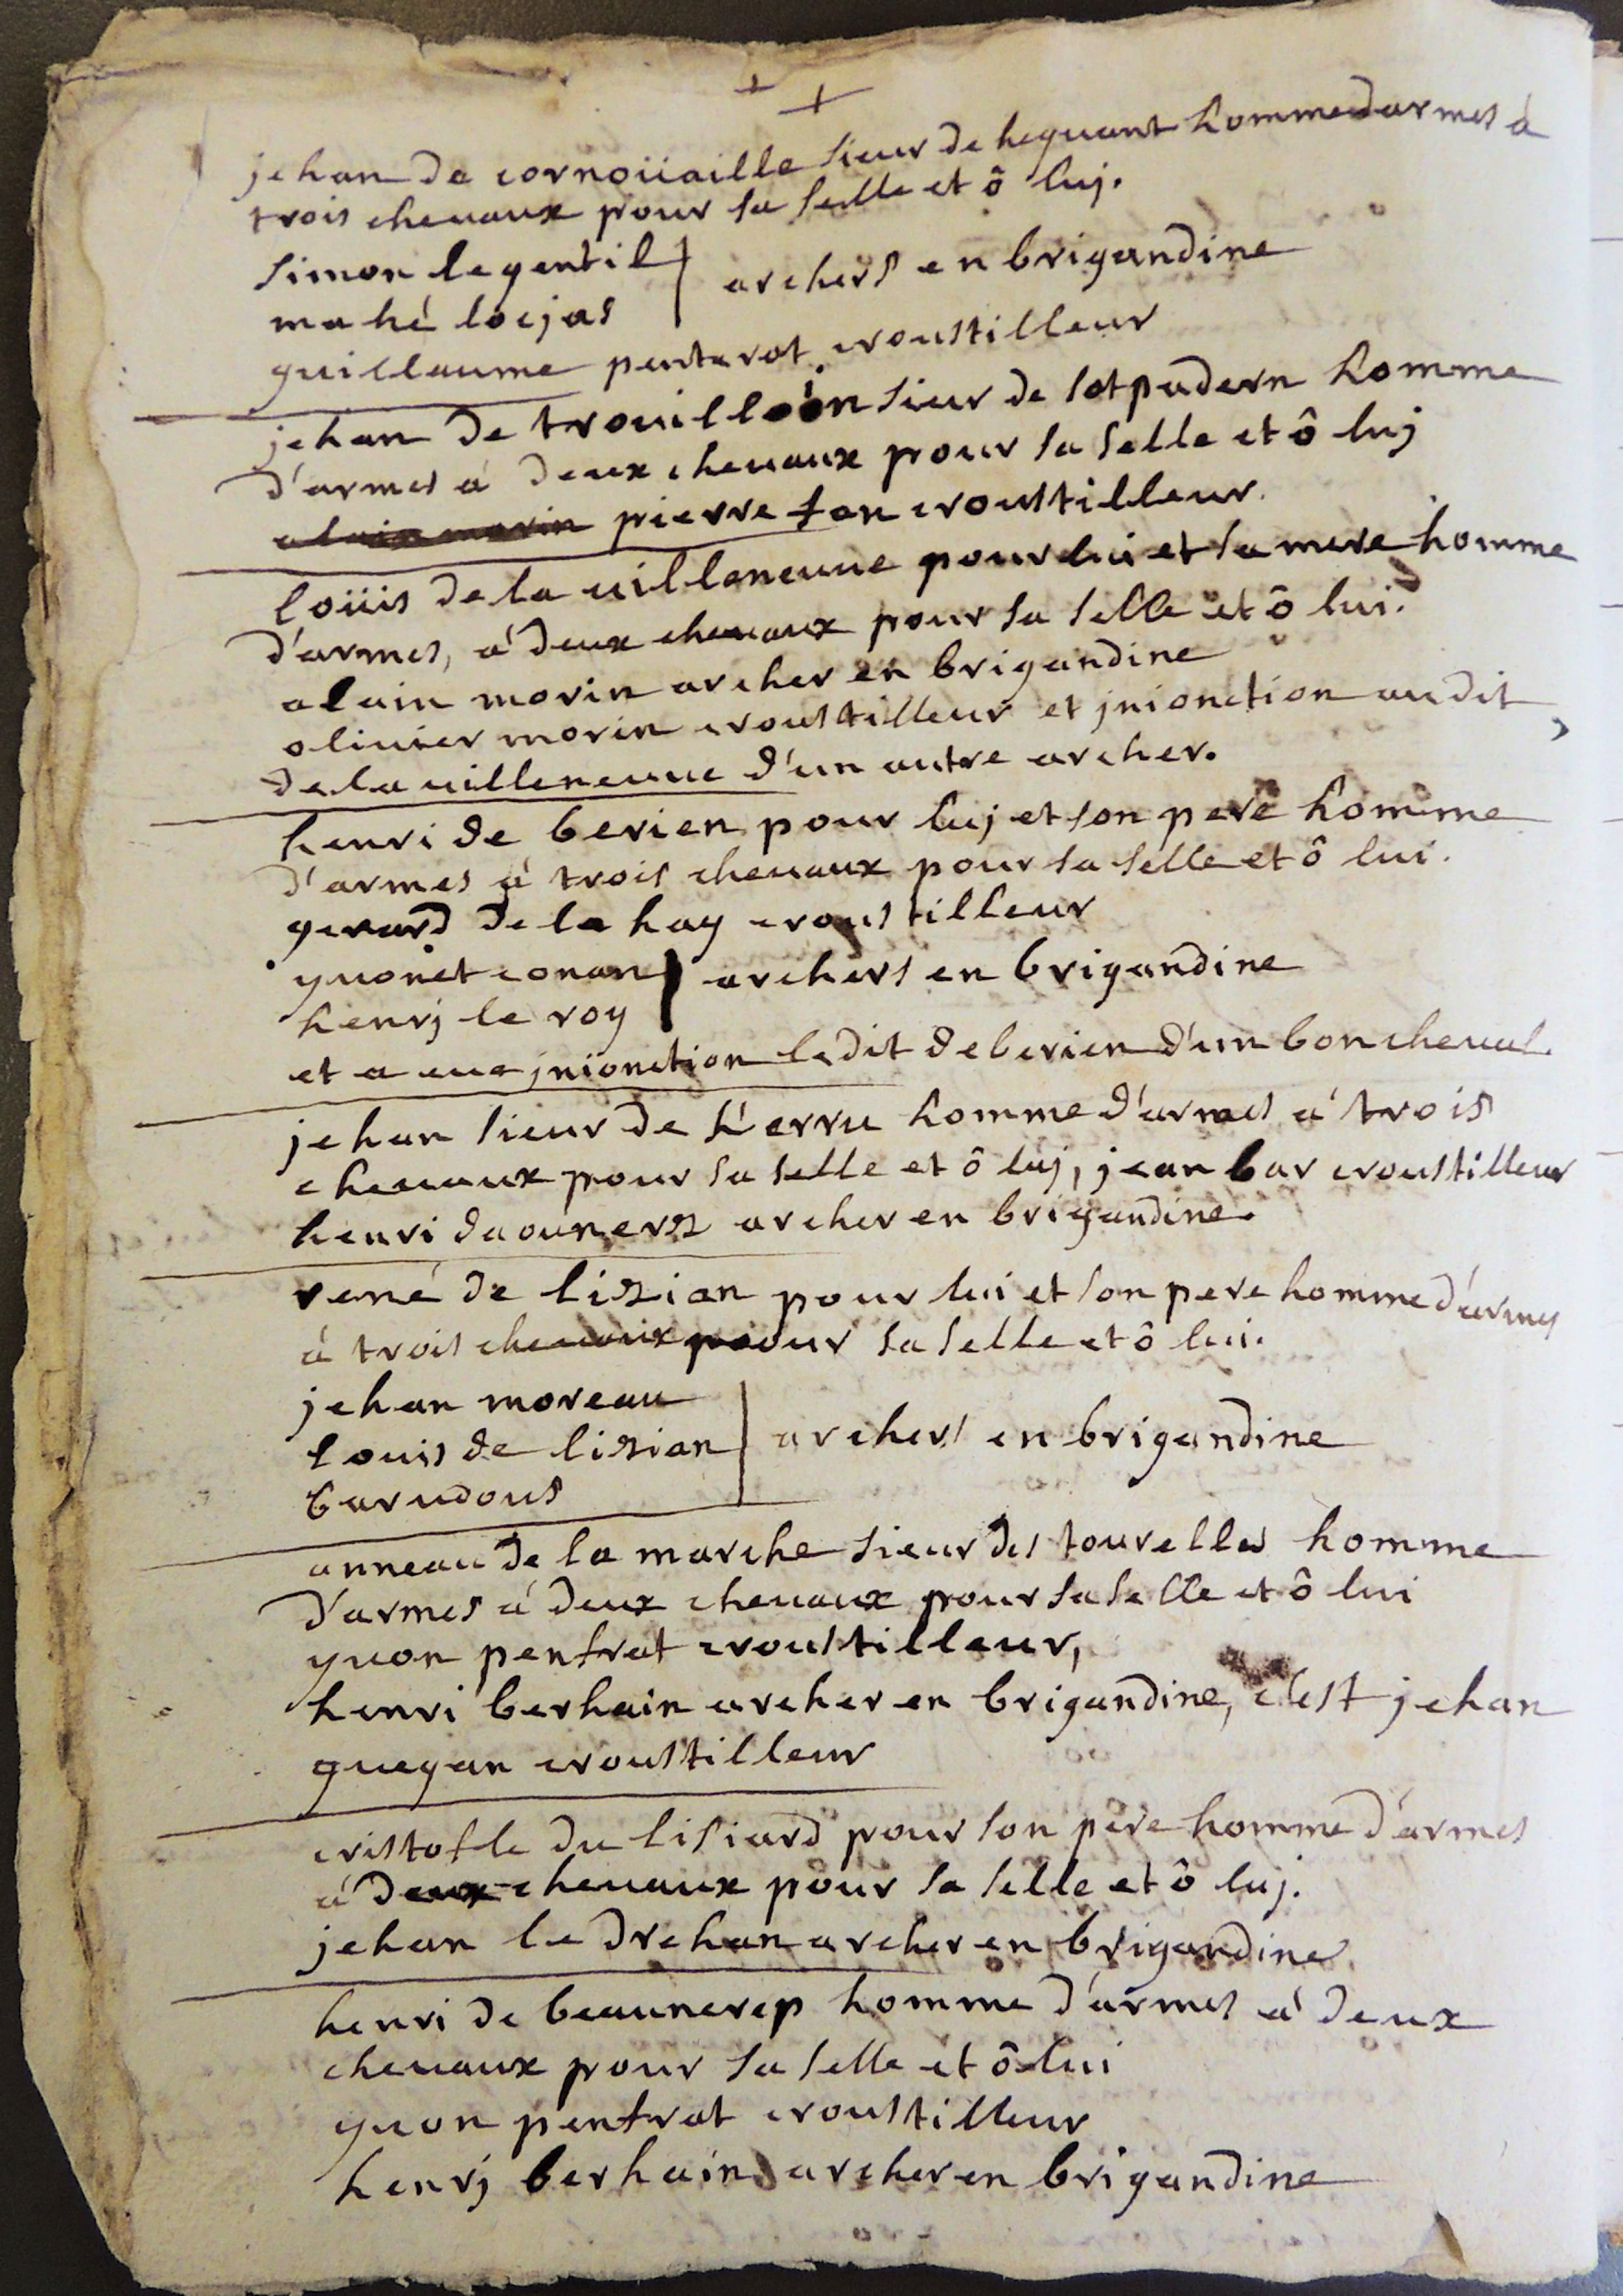 jehan de cornoüaille sieur de hequant homme darmes à
trois cheuaux pour sa selle et ô luj.
simon le gentil
mahé locjas
archers en brigandine
guillaume penterot croustilleur
jehan de trouillon sieur de lotpadern homme
d'armes a deux cheuaux pour sa selle et ô luj
alain morin pierre fan croustilleur.
loüis de la uilleneuue pour lui et sa mere homme
d'armes, a deux cheuaux pour sa selle et ô lui.
alain morin archer en brigandine
oliuier morin croustilleur et jnionction audit
de la uilleneuue d'un autre archer.
henri de berien pour luj et son pere homme
d'armes a trois cheuaux pour sa selle et ô lui.
gerard de la hay croustilleur
yuonet conan
henrj le roy
archers en brigandine
et a eue jnionction ledit de berien d'un bon cheual.
jehan sieur de k'erru homme d'armes a trois
cheuaux pour sa selle et ô luj, jean bar croustilleur
henri daounersz archer en brigandine.
rené de lizian pour lui et son pere homme d'armes
à trois cheuaux pour sa selle et ô lui.
jehan moreau
louis de lizian
barudous
archers en brigandine
anneau de la marche sieur des tourelles homme
d'armes a deux cheuaux pour sa selle et ô lui
yuon pentrat croustilleur,
henri berhain archer en brigandine, c'est jehan
guegan croustilleur
cristofle du lisiard pour son pere homme d'armes
a deux cheuaux pour sa selle et ô luj.
jehan le drehan archer en brigandine
henri de beaunerep homme d'armes a deux
cheuaux pour sa selle et ô lui
yuon pentrat croustilleur
henrj berhain archer en brigandine